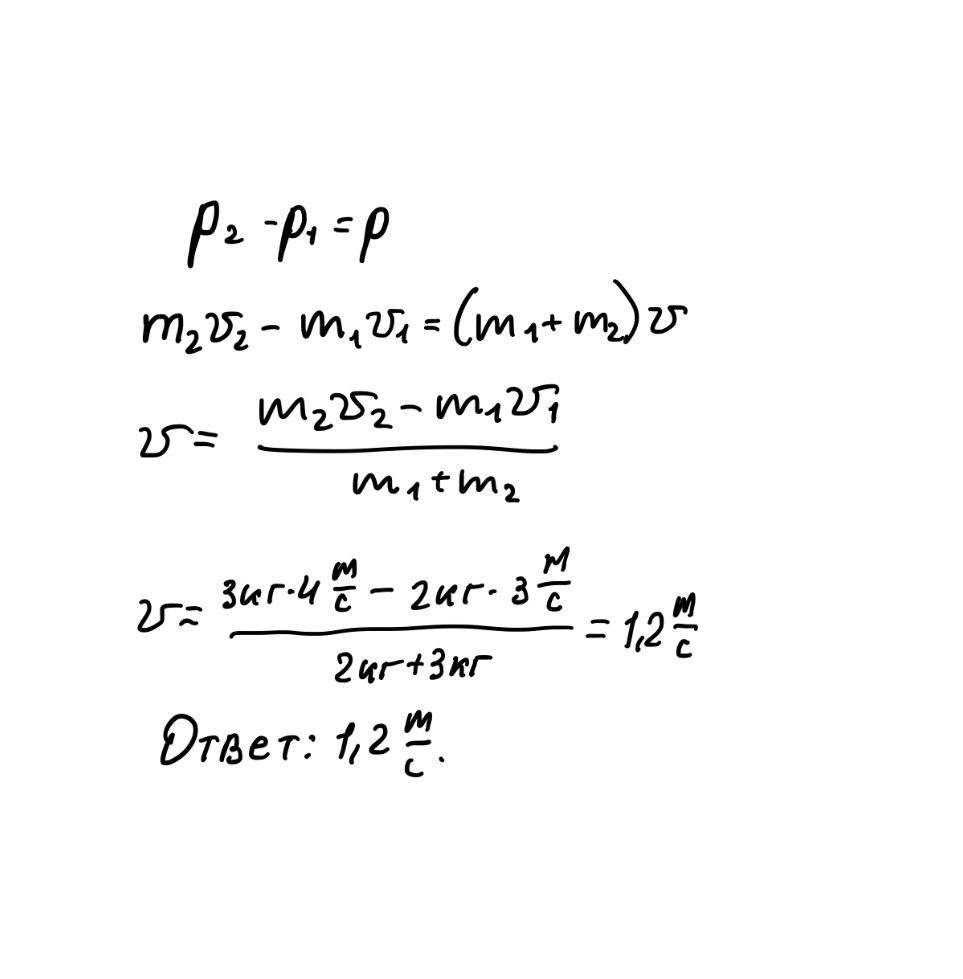 p₂ - p₁ = p
m₂v₂ - m₁v₁ = (m₁ + m₂)v
v = (m₂v₂ - m₁v₁) / (m₁ + m₂)
v = (3кг·4 м/с - 2кг·3 м/с) / (2кг + 3кг) = 1,2 м/с
Ответ: 1,2 м/с.